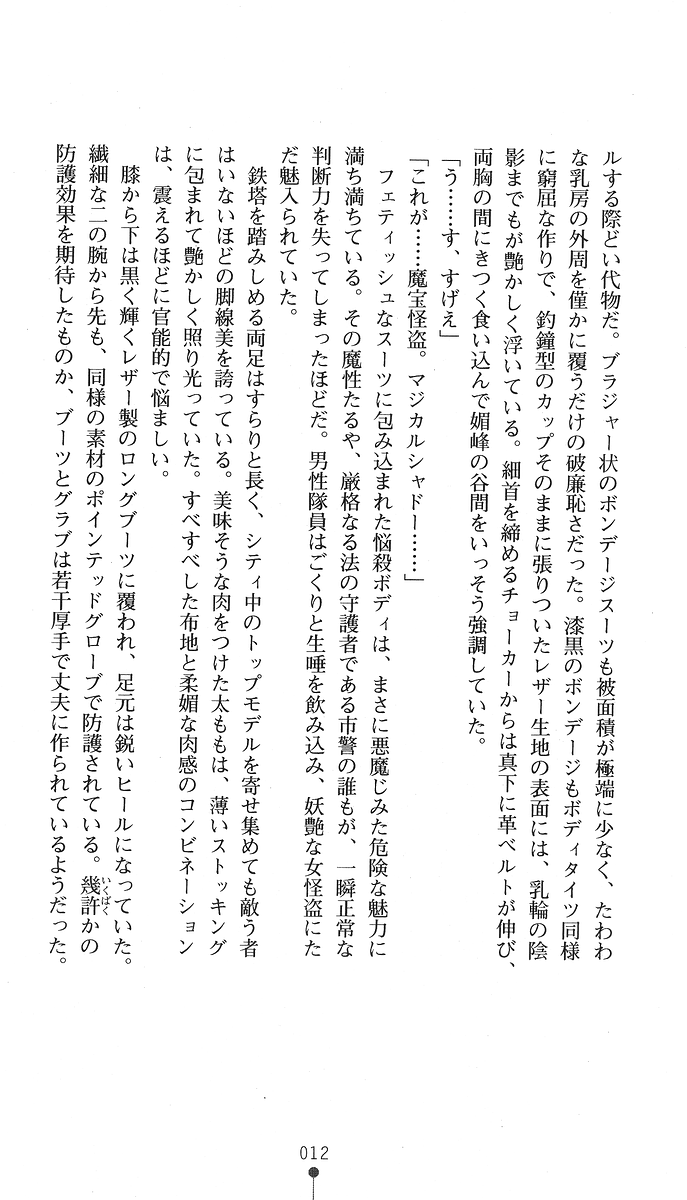 ルする際どい代物だ。ブラジャー状のボンデージスーツも被面積が極端に少なく、たわわ
な乳房の外周を僅かに覆うだけの破廉恥さだった。漆黒のボンデージもボディタイツ同様
に窮屈な作りで、釣鐘型のカップそのままに張りついたレザー生地の表面には、乳輪の陰
影までもが艶かしく浮いている。細首を締めるチョーカーからは真下に革ベルトが伸び、
両胸の間にきつく食い込んで媚峰の谷間をいっそう強調していた。
「う……す、すげえ」
「これが……魔宝怪盗。マジカルシャドー……」
フェティッシュなスーツに包み込まれた悩殺ボディは、まさに悪魔じみた危険な魅力に
満ち満ちている。その魔性たるや、厳格なる法の守護者である市警の誰もが、一瞬正常な
判断力を失ってしまったほどだ。男性隊員はごくりと生唾を飲み込み、妖艶な女怪盗にた
だ魅入られていた。
鉄塔を踏みしめる両足はすらりと長く、シティ中のトップモデルを寄せ集めても敵う者
はいないほどの脚線美を誇っている。美味そうな肉をつけた太ももは、薄いストッキング
に包まれて艶かしく照り光っていた。すべすべした布地と柔媚な肉感のコンビネーション
は、震えるほどに官能的で悩ましい。
膝から下は黒く輝くレザー製のロングブーツに覆われ、足元は鋭いヒールになっていた。
繊細な二の腕から先も、同様の素材のポインテッドグローブで防護されている。幾許かの
いくばく
防護効果を期待したものか、ブーツとグラブは若干厚手で丈夫に作られているようだった。
012